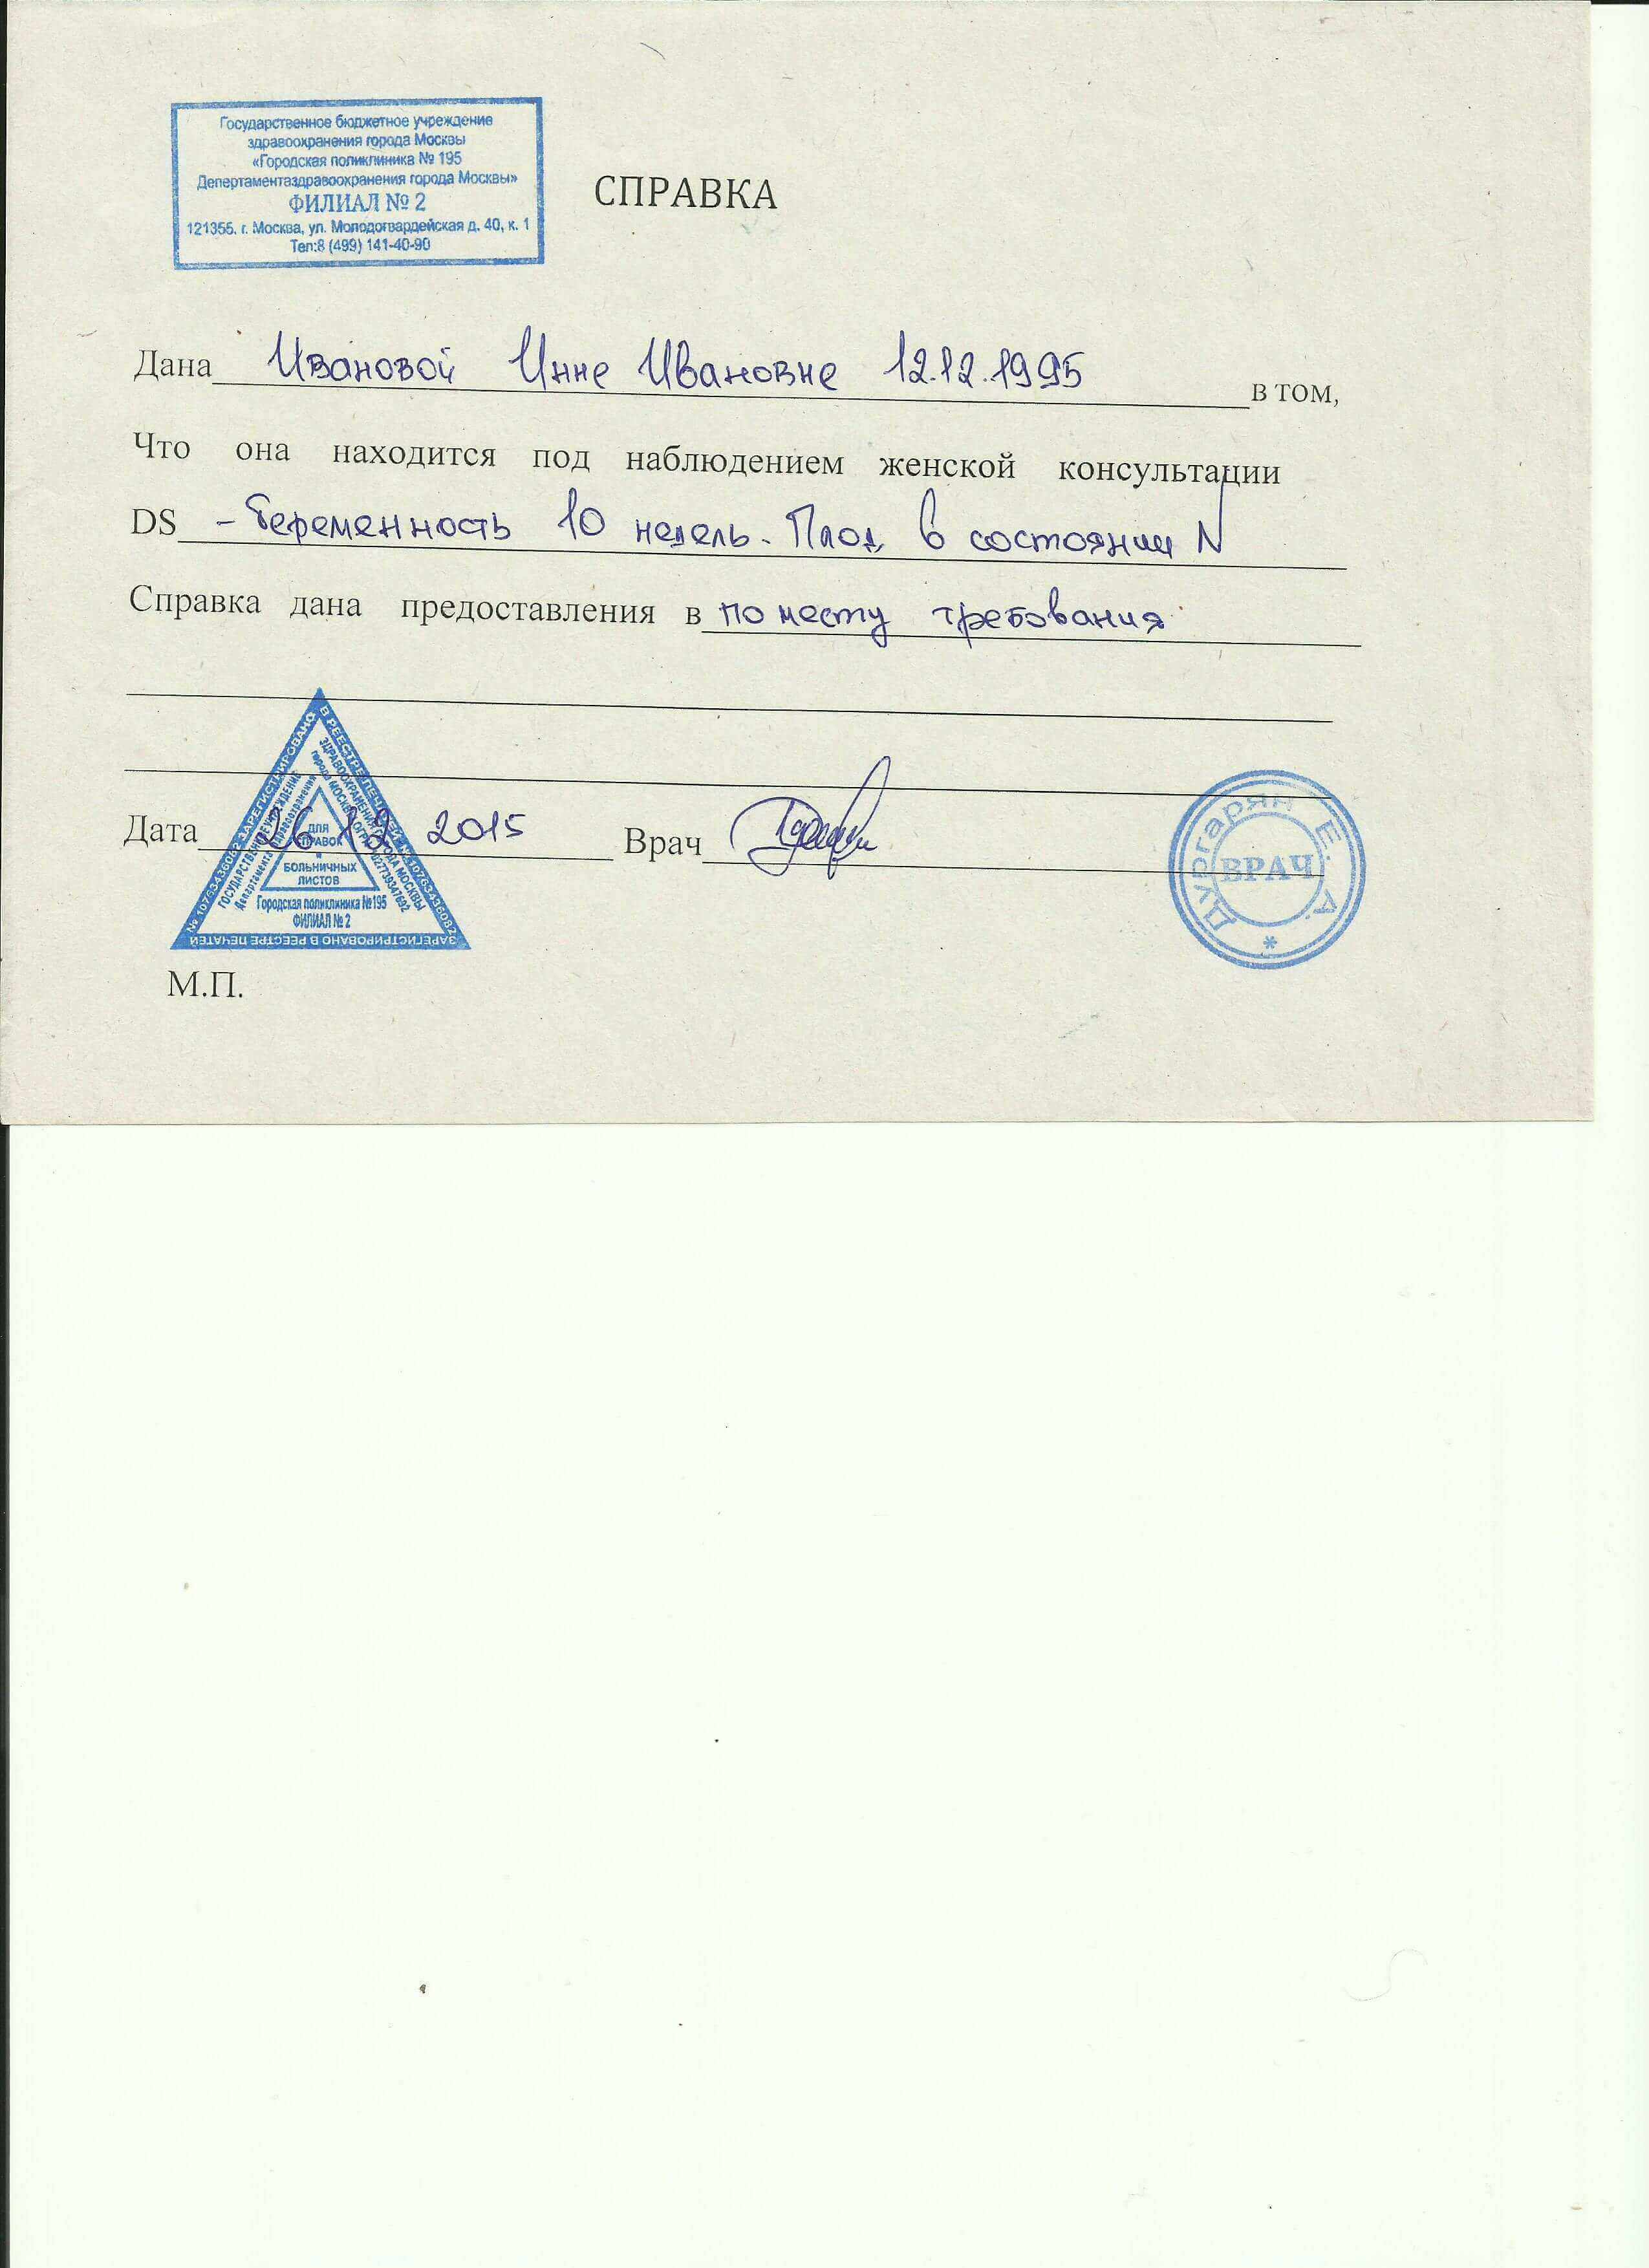 Государственное бюджетное учреждение
здравоохранения города Москвы
«Городская поликлиника № 195
Депертаментаздравоохранения города Москвы»
ФИЛИАЛ № 2
121355. г. Москва, ул. Молодогвардейская д. 40, к. 1
Тел:8 (499) 141-40-90
СПРАВКА
Дана Ивановой Инне Ивановне 12.12.1995 в том,
Что она находится под наблюдением женской консультации
DS - беременность 10 недель. Плод в состоянии N
Справка дана предоставления в по месту требования
Дата 26 12 2015 Врач
№ 1076343608 ЗАРЕГИСТРИРОВАНО
В РЕЕСТРЕ ПЕЧАТЕЙ
ЗАРЕГИСТРИРОВАНО В РЕЕСТРЕ ПЕЧАТЕЙ
ГОСУДАРСТВЕННОЕ УЧРЕЖДЕНИЕ
Департамента здравоохранения
ЗДРАВООХРАНЕНИЯ ГОРОДА МОСКВЫ
города МОСКВЫ ОГРН 1027739347692
ДЛЯ
СПРАВОК
и
БОЛЬНИЧНЫХ
ЛИСТОВ
Городская поликлиника №195
ФИЛИАЛ № 2
Дургарян Е. А.
ВРАЧ
М.П.